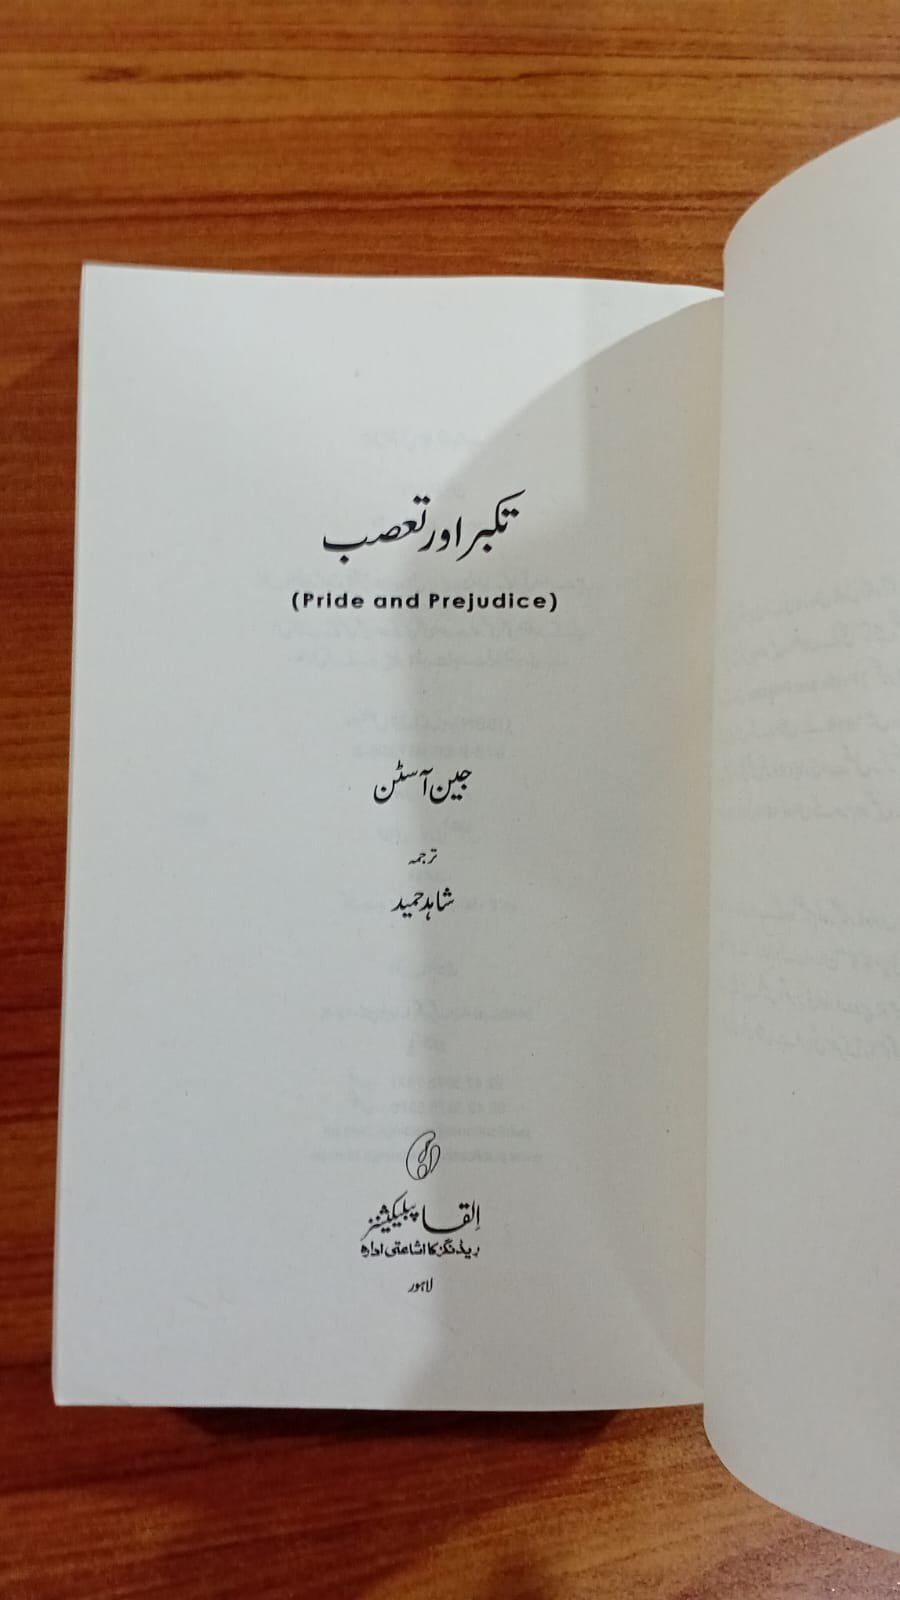 تکبر اور تعصب
(Pride and Prejudice)
جین آسٹن
ترجمہ
شاہد حمید
اِلقا پبلیکیشنز
ریڈنگز کا اشاعتی ادارہ
لاہور